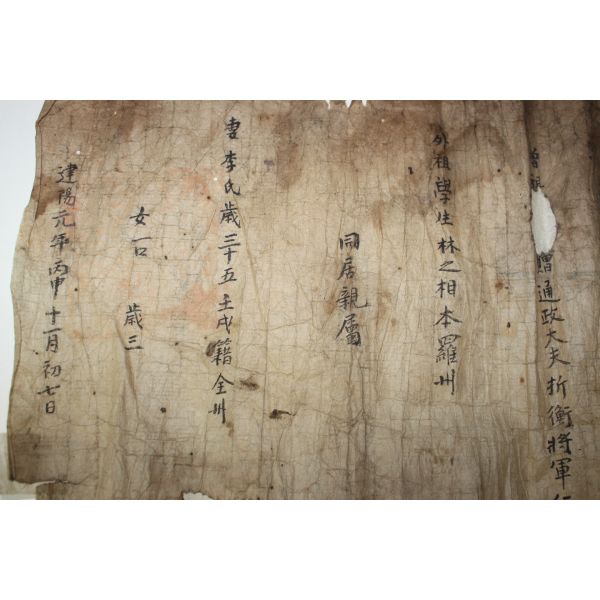 贈通政大夫折衝將軍
外祖學生林之相本羅州
同居親屬
妻李氏歲三十五壬戌籍全州
女一口 歲三
建陽元年丙申十一月初七日